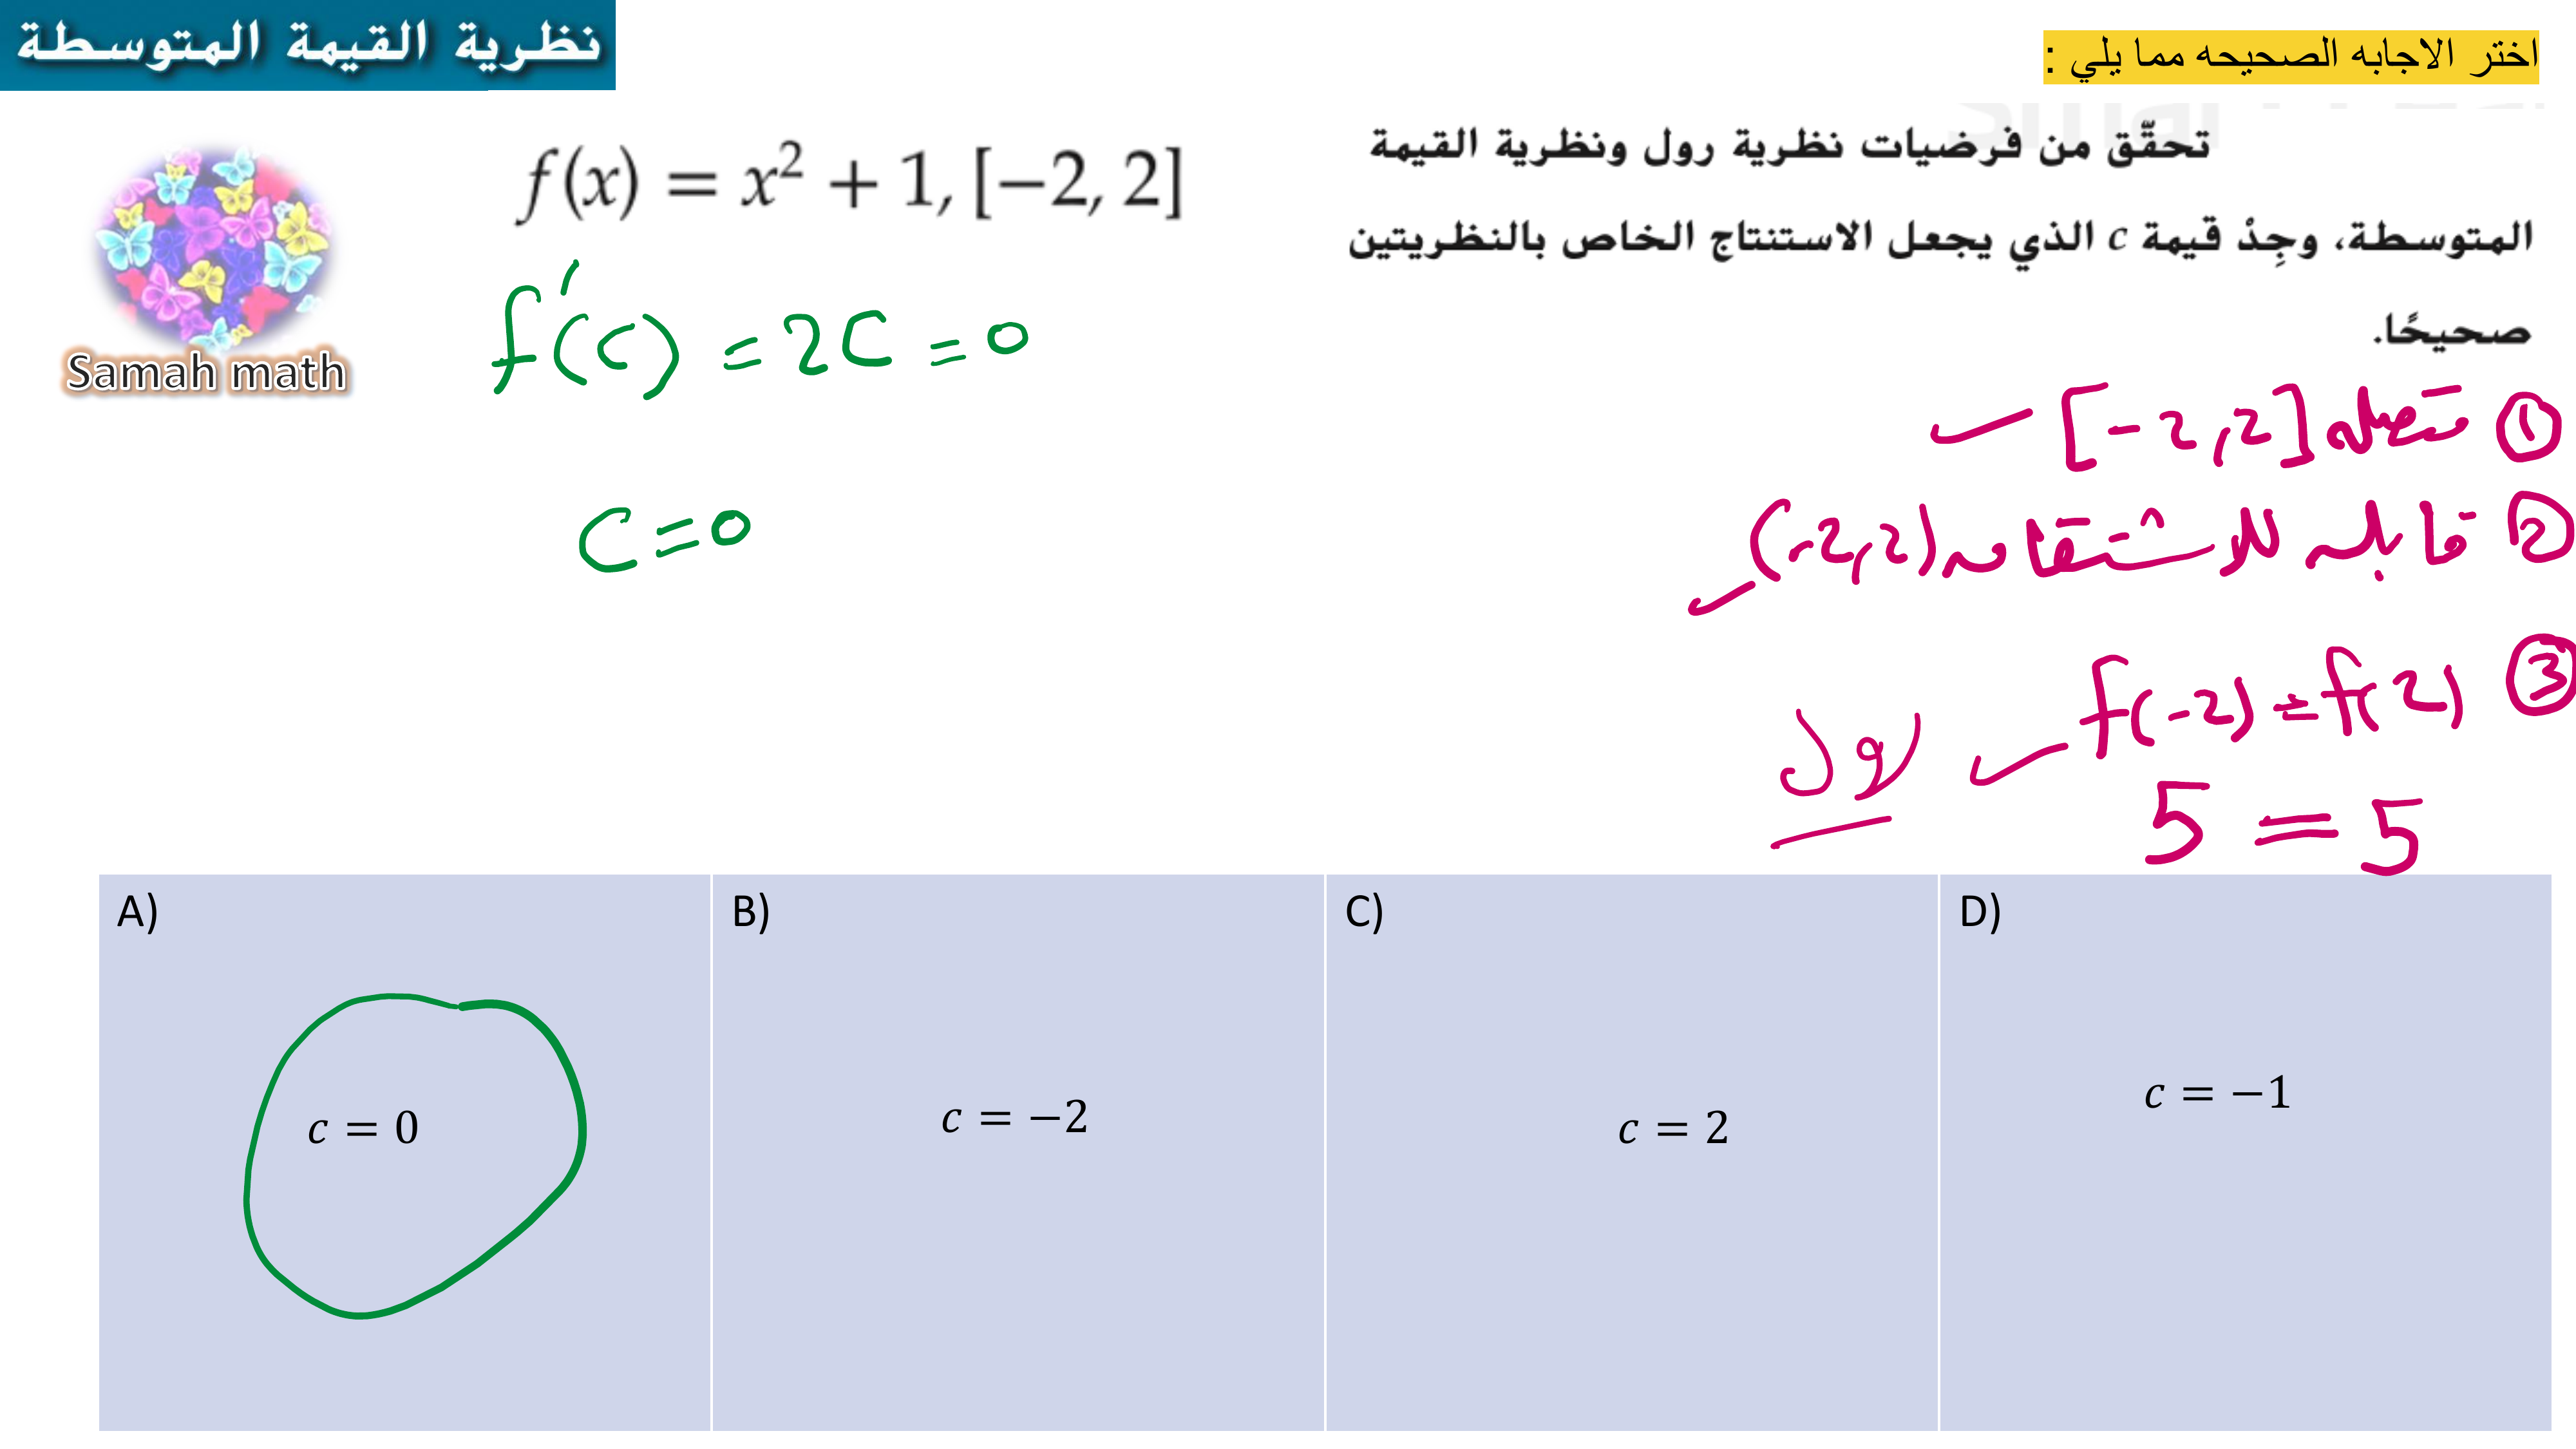 نظرية القيمة المتوسطة
اختر الاجابه الصحيحه مما يلي :
تحقّق من فرضيات نظرية رول ونظرية القيمة
المتوسطة، وجِدْ قيمة c الذي يجعل الاستنتاج الخاص بالنظريتين
صحيحًا.
f(x) = x² + 1, [−2, 2]
Samah math
f'(c) = 2c = 0
c = 0
① متصله [-2,2] ✓
② قابله للاشتقاق (-2,2) ✓
③ f(-2) = f(2) ✓ رول
5 = 5
A)
c = 0
B)
c = −2
C)
c = 2
D)
c = −1